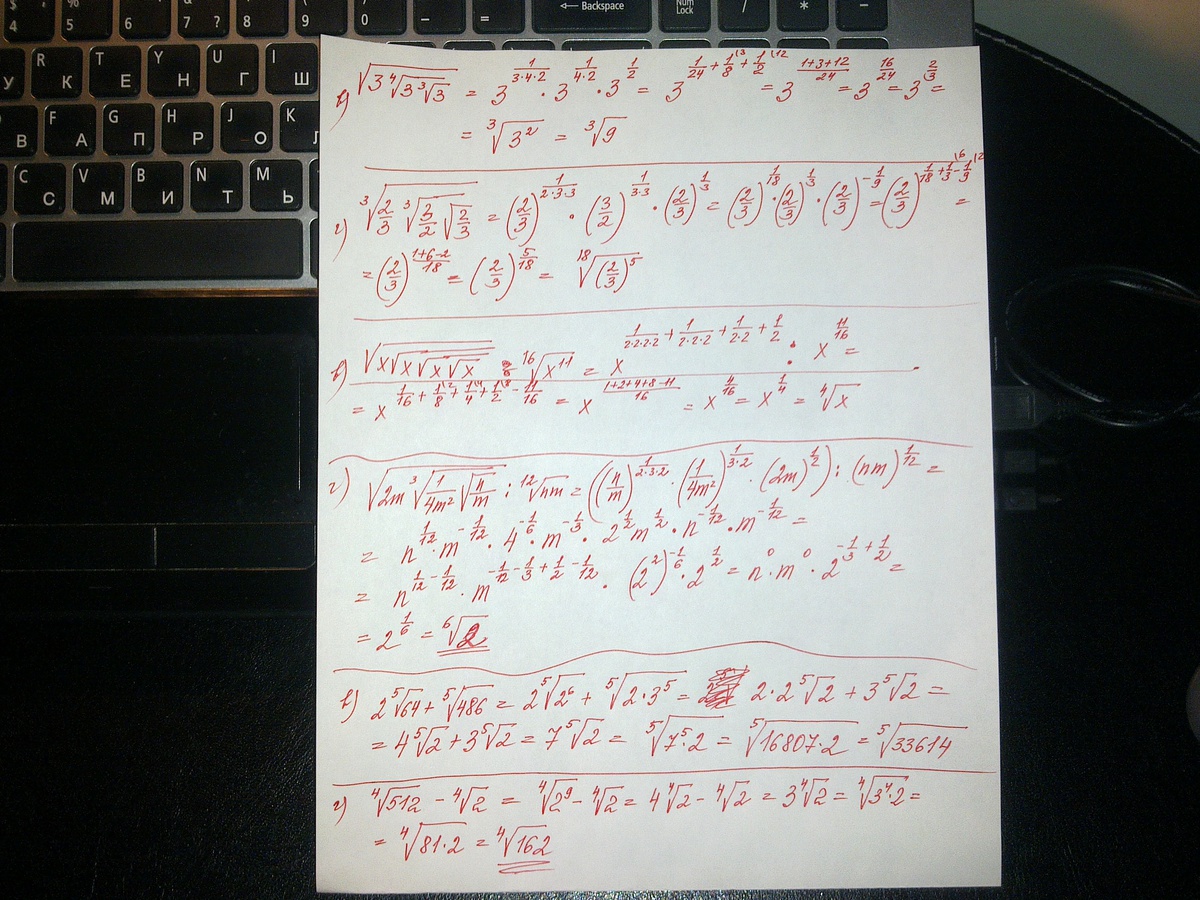 $ 4 % 5 6 & 7 ? 8 9 0 - = ← Backspace Num Lock / * -
У R К T Е Y Н U Г I Ш
В F А G П H Р J О K Л
C С V М B И N Т M Ь
в) √(3 ⁴√(3 ³√3)) = 3^(1/(3·4·2)) · 3^(1/(4·2)) · 3^(1/2) = 3^(1/24 + 1/8\3 + 1/2\12) = 3^((1+3+12)/24) = 3^(16/24) = 3^(2/3) =
= ³√(3²) = ³√9
г) ³√(2/3 ³√(3/2 √(2/3))) = (2/3)^(1/(2·3·3)) · (3/2)^(1/(3·3)) · (2/3)^(1/3) = (2/3)^(1/18) · (2/3)^(1/3) · (2/3)^(-1/9) = (2/3)^(1/18 + 1/3\6 - 1/9\2) =
= (2/3)^((1+6-2)/18) = (2/3)^(5/18) = ¹⁸√((2/3)⁵)
в) √(x√(x√(x√x))) : ¹⁶√(x¹¹) = x^(1/(2·2·2·2) + 1/(2·2·2) + 1/(2·2) + 1/2) : x^(11/16) =
= x^(1/16 + 1/8\2 + 1/4\4 + 1/2\8 - 11/16) = x^((1+2+4+8-11)/16) = x^(4/16) = x^(1/4) = ⁴√x
г) √(2m ³√(1/(4m²) √(n/m))) : ¹²√(nm) = ((n/m)^(1/(2·3·2)) · (1/(4m²))^(1/(3·2)) · (2m)^(1/2)) : (nm)^(1/12) =
= n^(1/12) · m^(-1/12) · 4^(-1/6) · m^(-1/3) · 2^(1/2) m^(1/2) · n^(-1/12) · m^(-1/12) =
= n^(1/12 - 1/12) · m^(-1/12 - 1/3 + 1/2 - 1/12) · (2²)^(-1/6) · 2^(1/2) = n⁰ · m⁰ · 2^(-1/3 + 1/2) =
= 2^(1/6) = ⁶√2
в) 2 ⁵√64 + ⁵√486 = 2 ⁵√(2⁶) + ⁵√(2·3⁵) = 2·2 ⁵√2 + 3 ⁵√2 =
= 4 ⁵√2 + 3 ⁵√2 = 7 ⁵√2 = ⁵√(7⁵·2) = ⁵√(16807·2) = ⁵√33614
г) ⁴√512 - ⁴√2 = ⁴√(2⁹) - ⁴√2 = 4 ⁴√2 - ⁴√2 = 3 ⁴√2 = ⁴√(3⁴·2) =
= ⁴√(81·2) = ⁴√162